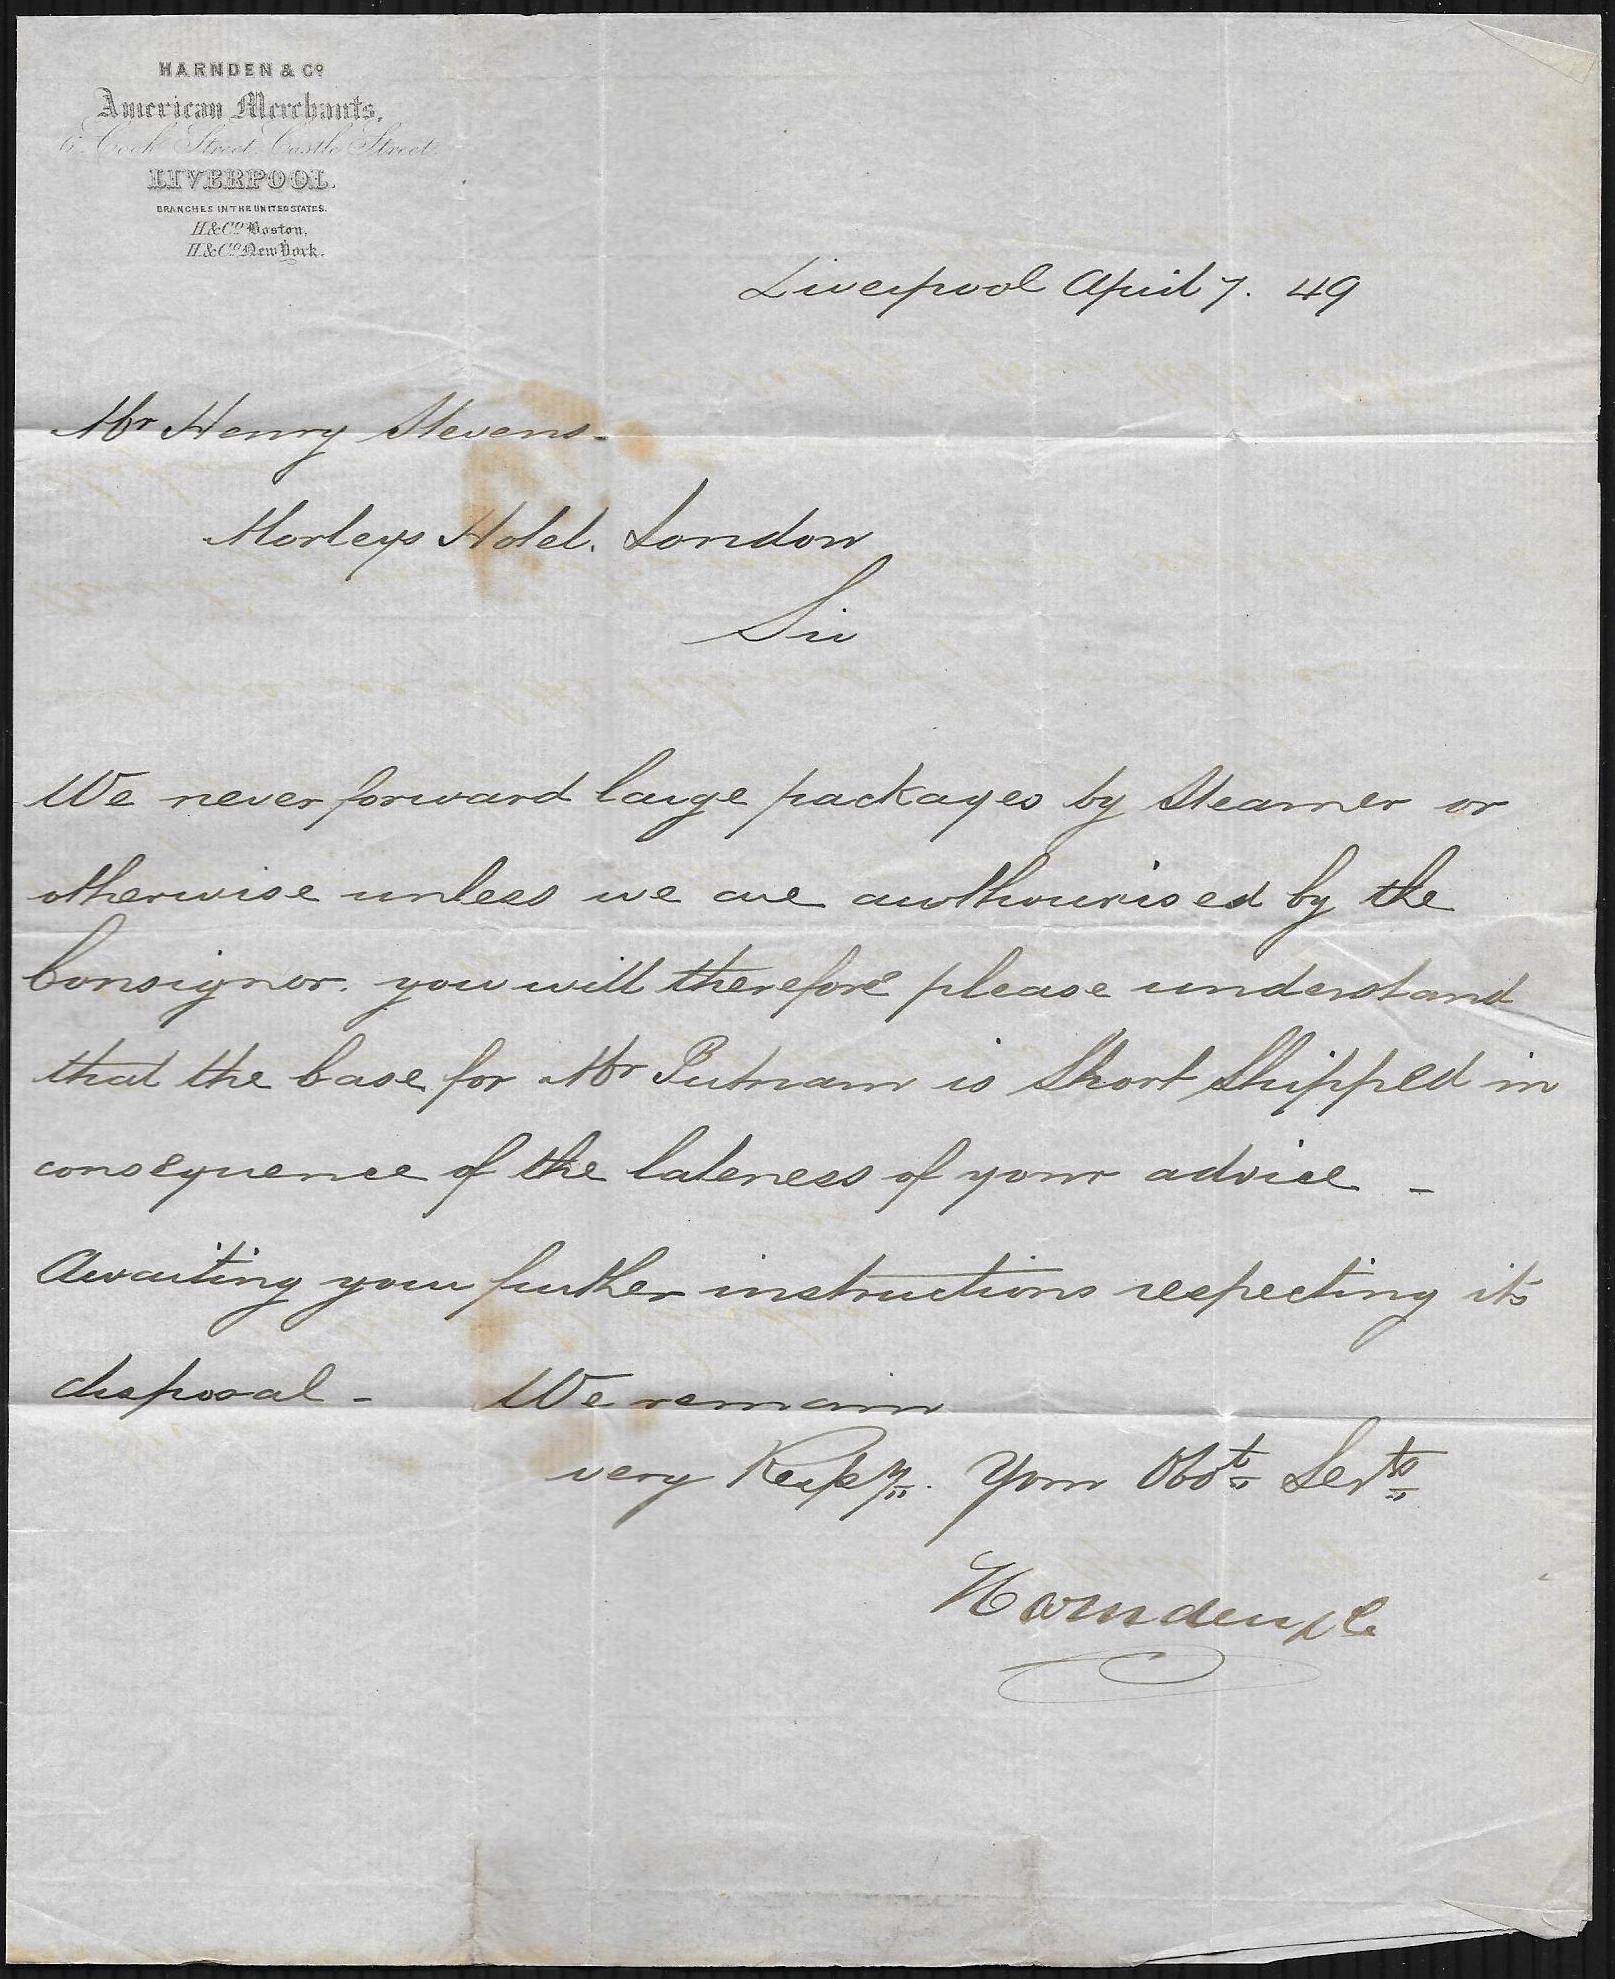 HARNDEN & Co
American Merchants,
6, Cook Street, Castle Street,
LIVERPOOL.
BRANCHES IN THE UNITED STATES.
H & Co Boston,
H & Co New York.
Liverpool April 7. 49
Mr Henry Stevens.
Morleys Hotel. London
Sir
We never forward large packages by Steamer or
otherwise unless we are authourised by the
Consignor. you will therefore please understand
that the Case for Mr Putnam is Short Shipped in
consequence of the lateness of your advice -
Awaiting your further instructions respecting its
disposal - We remain
very Respy. Your Obdt Servts
Harnden & Co